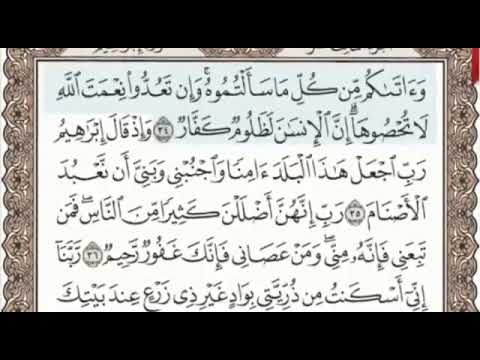 وَءَاتَىٰكُم مِّن كُلِّ مَا سَأَلْتُمُوهُ ۚ وَإِن تَعُدُّوا۟ نِعْمَتَ ٱللَّهِ
لَا تُحْصُوهَآ ۗ إِنَّ ٱلْإِنسَـٰنَ لَظَلُومٌ كَفَّارٌ ٣٤ وَإِذْ قَالَ إِبْرَٰهِيمُ
رَبِّ ٱجْعَلْ هَـٰذَا ٱلْبَلَدَ ءَامِنًا وَٱجْنُبْنِى وَبَنِىَّ أَن نَّعْبُدَ
ٱلْأَصْنَامَ ٣٥ رَبِّ إِنَّهُنَّ أَضْلَلْنَ كَثِيرًا مِّنَ ٱلنَّاسِ ۖ فَمَن
تَبِعَنِى فَإِنَّهُۥ مِنِّى ۖ وَمَنْ عَصَانِى فَإِنَّكَ غَفُورٌ رَّحِيمٌ ٣٦ رَّبَّنَآ
إِنِّىٓ أَسْكَنتُ مِن ذُرِّيَّتِى بِوَادٍ غَيْرِ ذِى زَرْعٍ عِندَ بَيْتِكَ